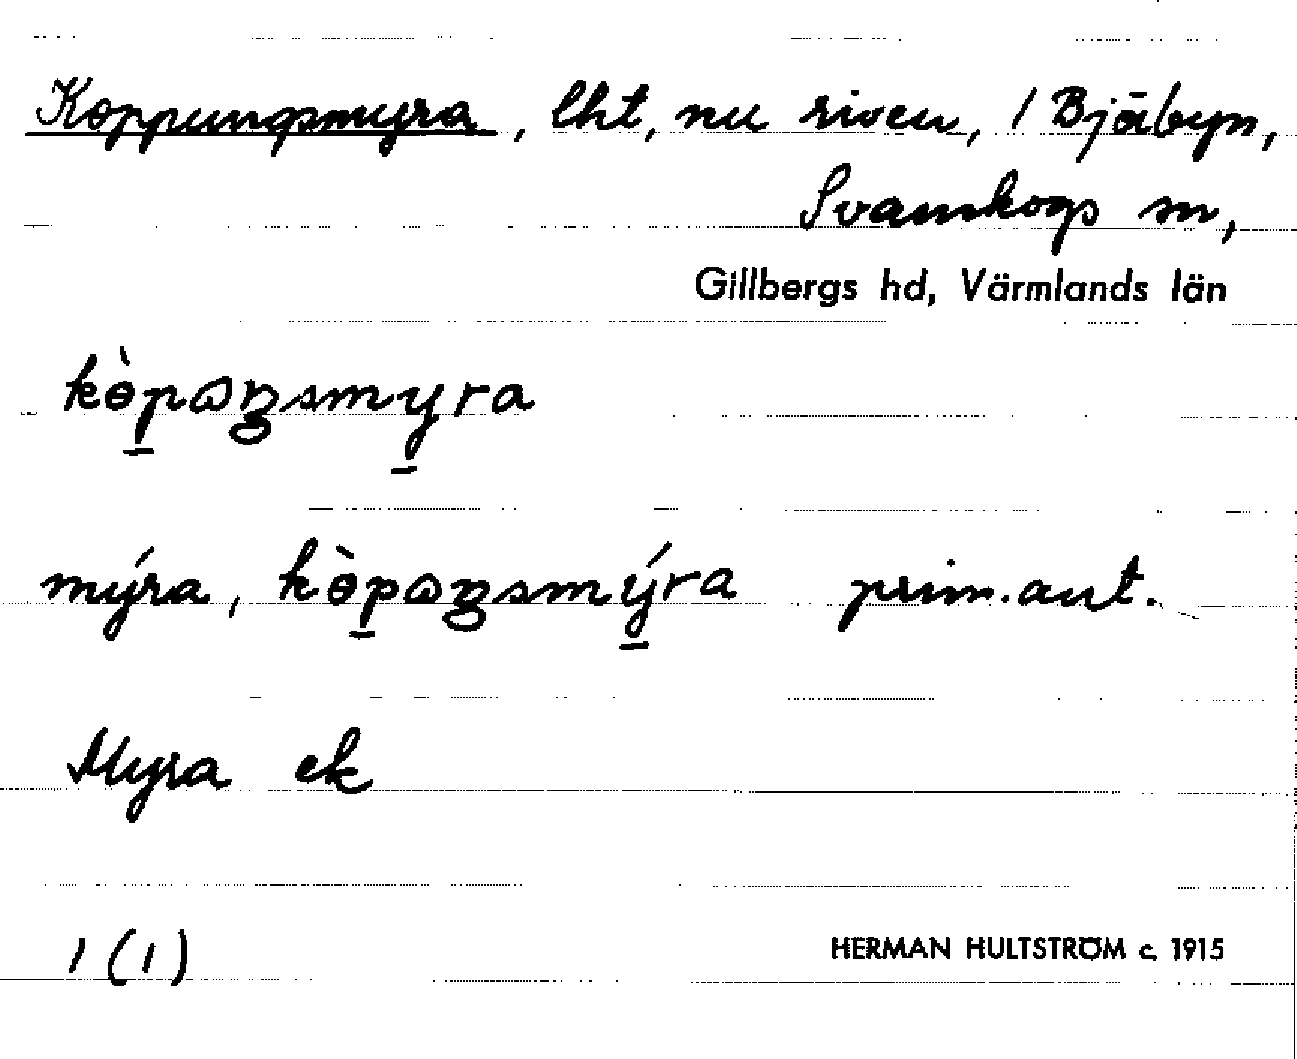 Koppungsmyra, lht, nu riven, / Bjäbyn,
Svanskogs sn,
Gillbergs hd, Värmlands län
kɵ̀pɷŋsmyra
mýra, kɵ̀pɷŋsmýra prim.ant.
Myra ek
1 (1)
HERMAN HULTSTRÖM c. 1915